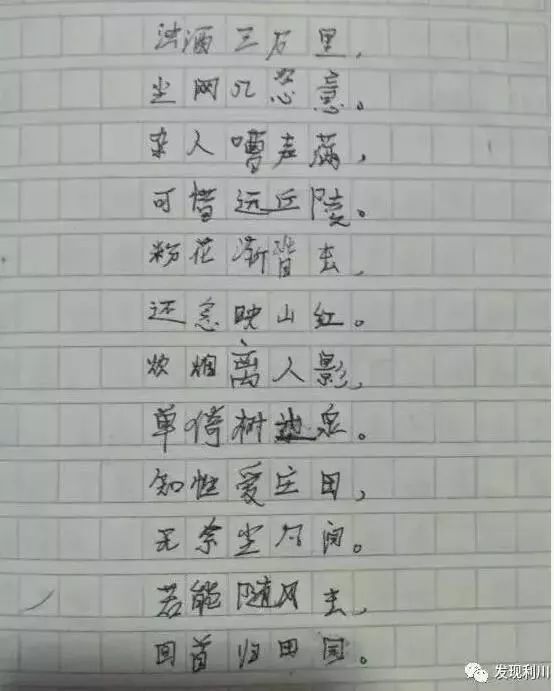 浊酒三石里，
尘网意。
杂人嘈声满，
可惜远丘陵。
粉花渐背去，
还念映山红。
炊烟离人影，
单倚树边泉。
知性爱庄田，
无奈尘间。
若能随风去，
回首归田园。
发现利川